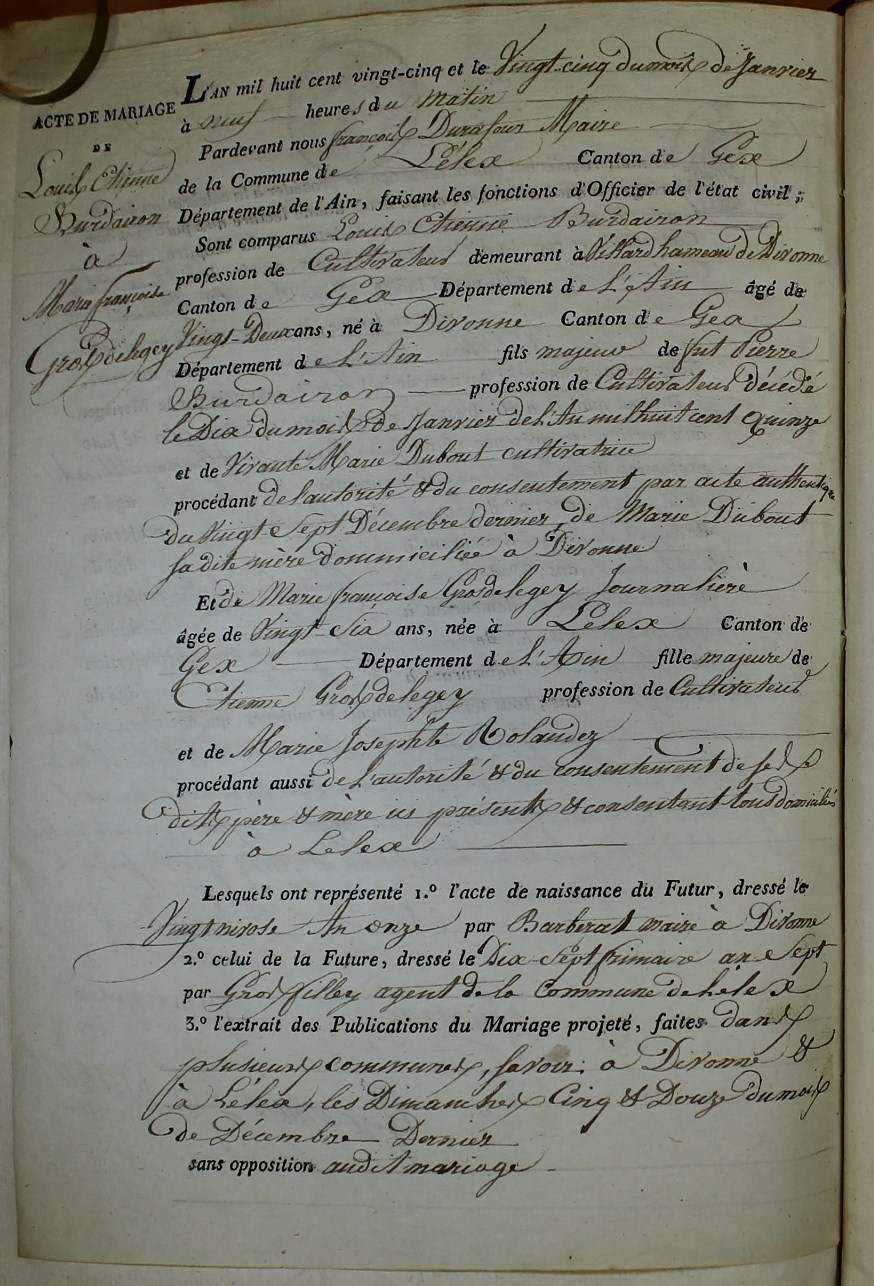 ACTE DE MARIAGE
DE
Louis Etienne
Burdairon
à
Marie françoise
Gros delegey
L'AN mil huit cent vingt-cinq et le Vingt-cinq du mois de Janvier
à neuf heures du matin
Pardevant nous françois Durafour Maire
de la Commune de Lélex Canton de Gex
Département de l'Ain, faisant les fonctions d'Officier de l'état civil;
Sont comparus Louis Etienne Burdairon
profession de Cultivateur demeurant à Villard hameau de Divonne
Canton de Gex Département de L'Ain âgé de
Vingt-Deux ans, né à Divonne Canton de Gex
Département de L'Ain fils majeur de fut Pierre
Burdairon profession de Cultivateur décédé
le Dix du mois de Janvier de l'An mil huit cent Quinze
et de Vivante Marie Dubout cultivatrice
procédant de l'autorité & du consentement par acte authentique
du Vingt Sept Décembre dernier, de Marie Dubout
sa dite mère dommiciliée à Divonne
Et de Marie françoise Gros delegey Journalière
âgée de Vingt-Six ans, née à Lélex Canton de
Gex Département de L'Ain fille majeure de
Etienne Gros delegey profession de Cultivateur
et de Marie Josephte Rolandez
procédant aussi de l'autorité & du consentement de ses
dits père & mère ici présents & consentant tous domiciliés
à Lélex
Lesquels ont représenté 1.º l'acte de naissance du Futur, dressé le
Vingt nivose An onze par Barberat maire à Divonne
2.º celui de la Future, dressé le Dix-Sept frimaire an Sept
par Gros filley agent de la Commune de Lélex
3.º l'extrait des Publications du Mariage projeté, faites dans
plusieurs communes, savoir: à Divonne &
à Lélex, les Dimanches Cinq & Douze du mois
de Décembre Dernier
sans opposition audit mariage